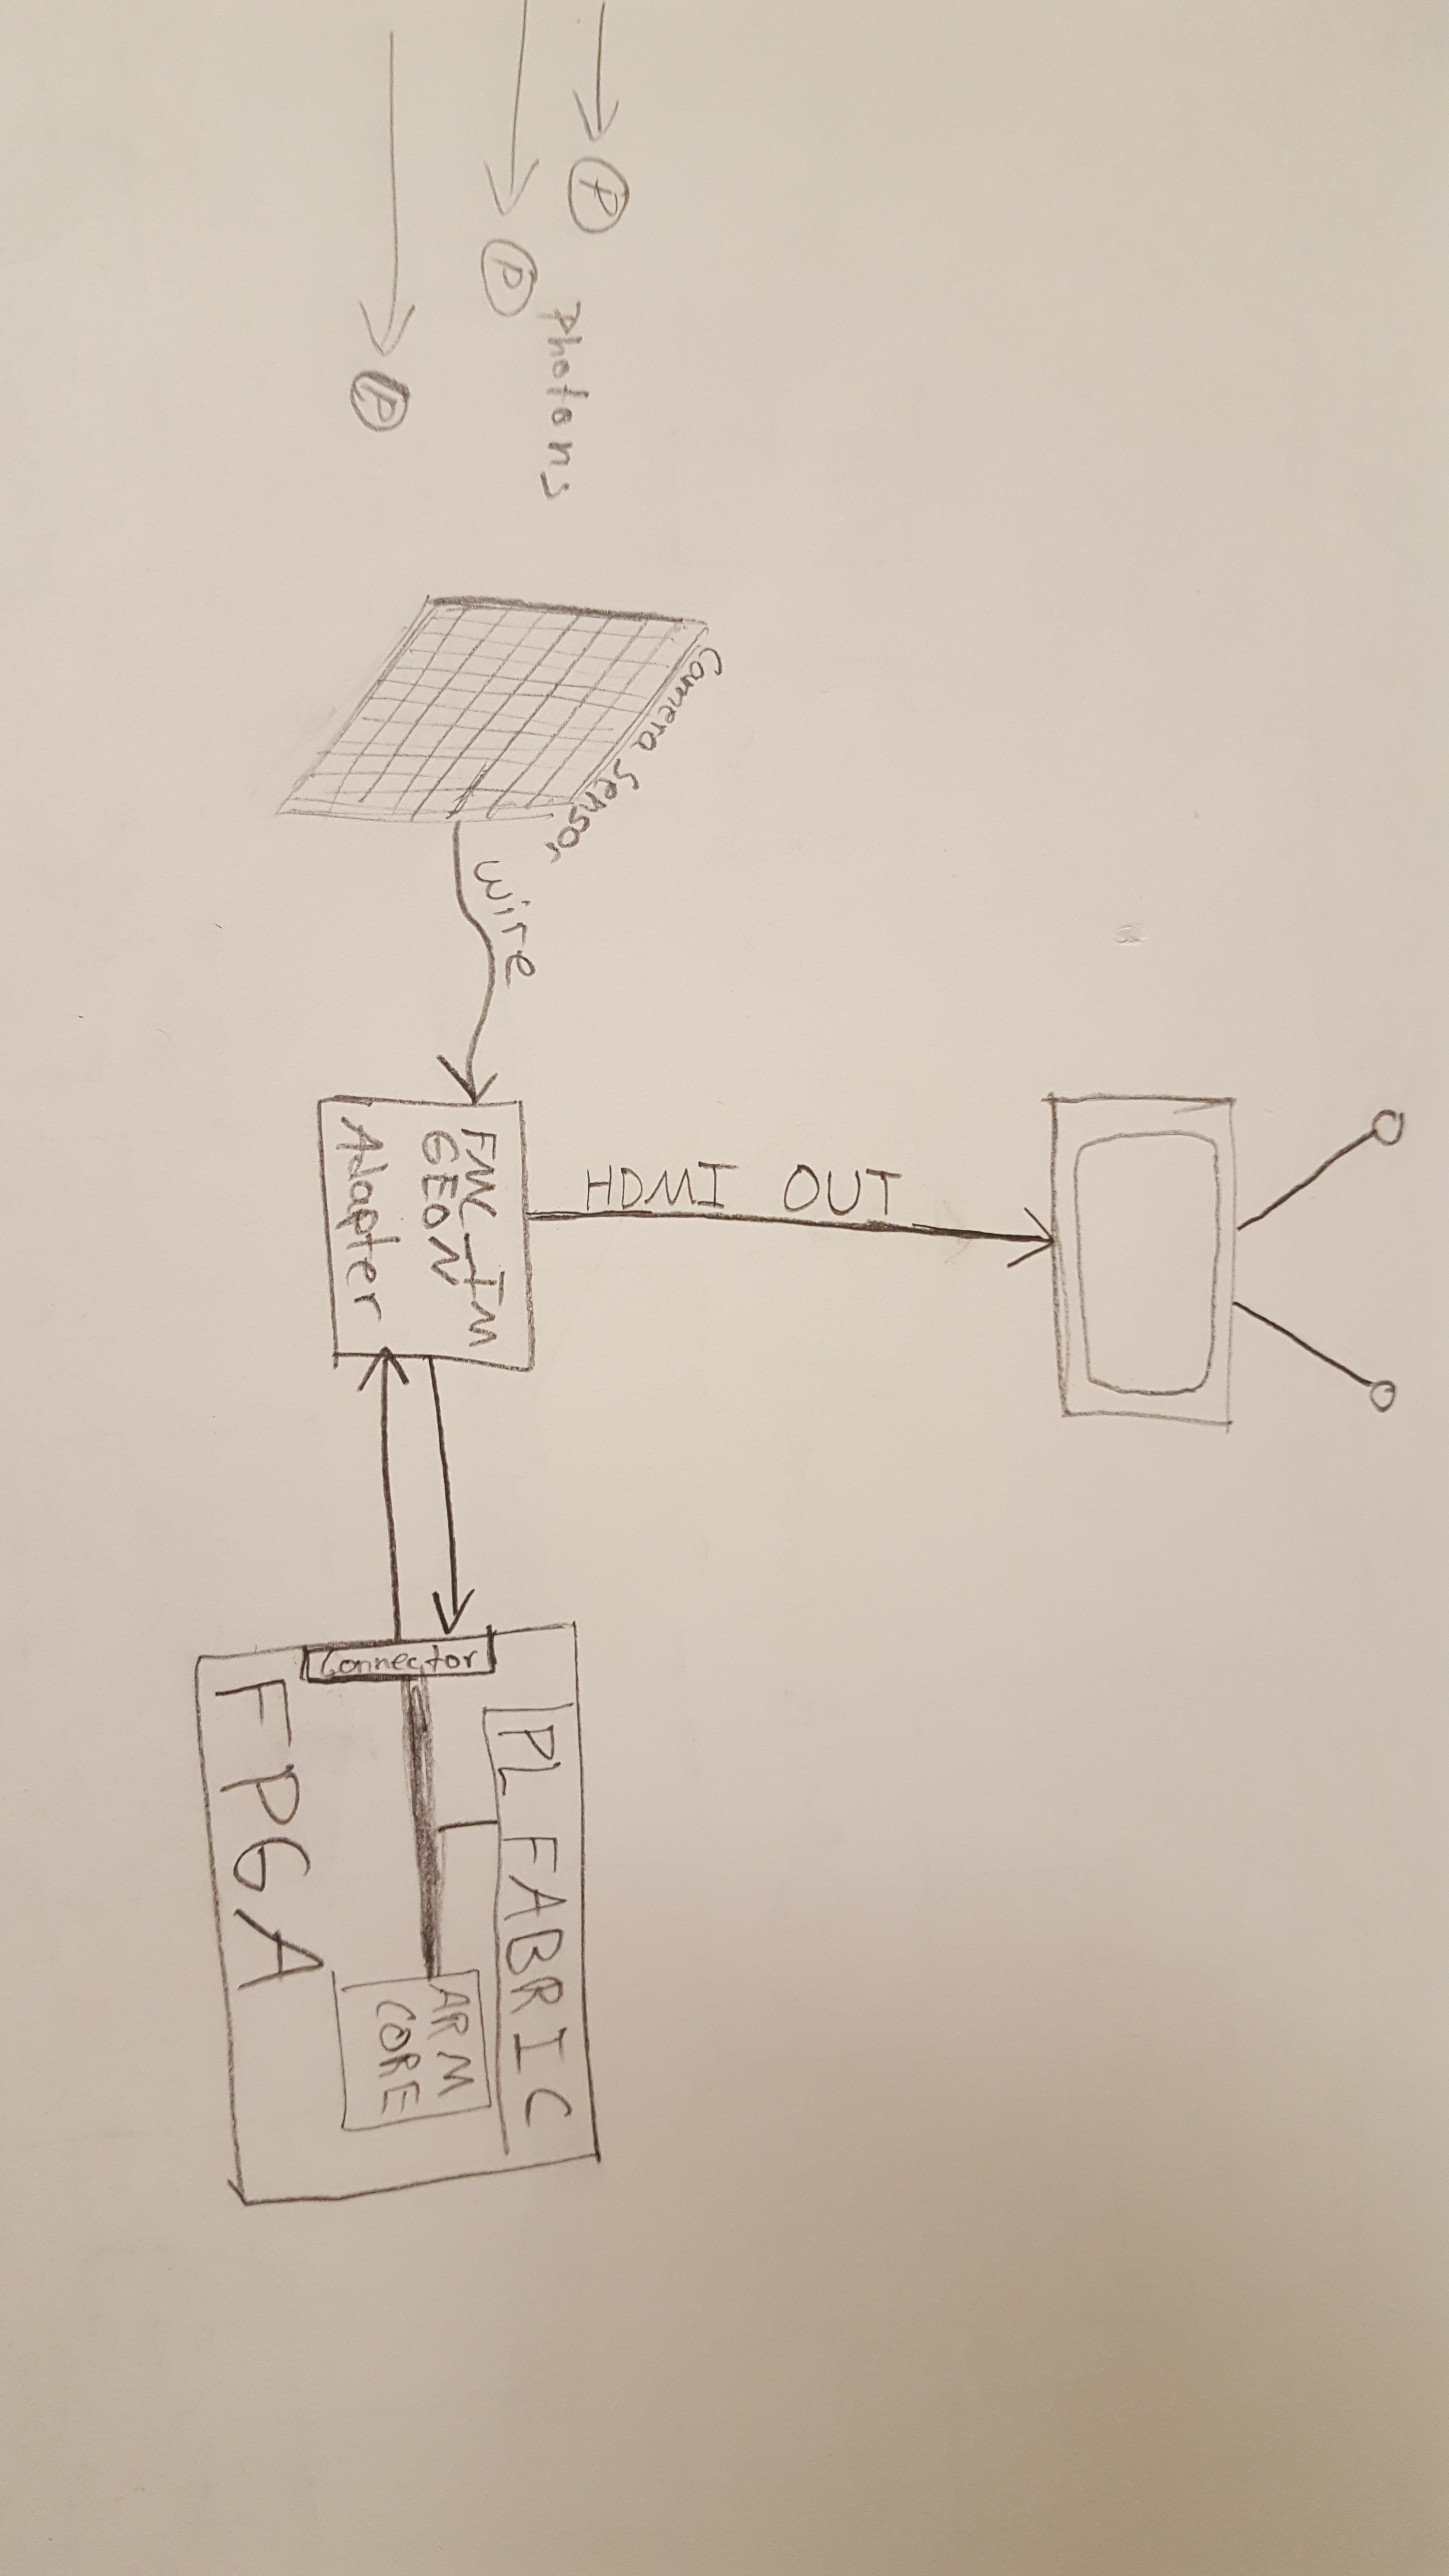 P
P
P
Photons
Camera Sensor
wire
FMC_IM
GEON
Adapter
HDMI OUT
Connector
PL FABRIC
FPGA
ARM
CORE